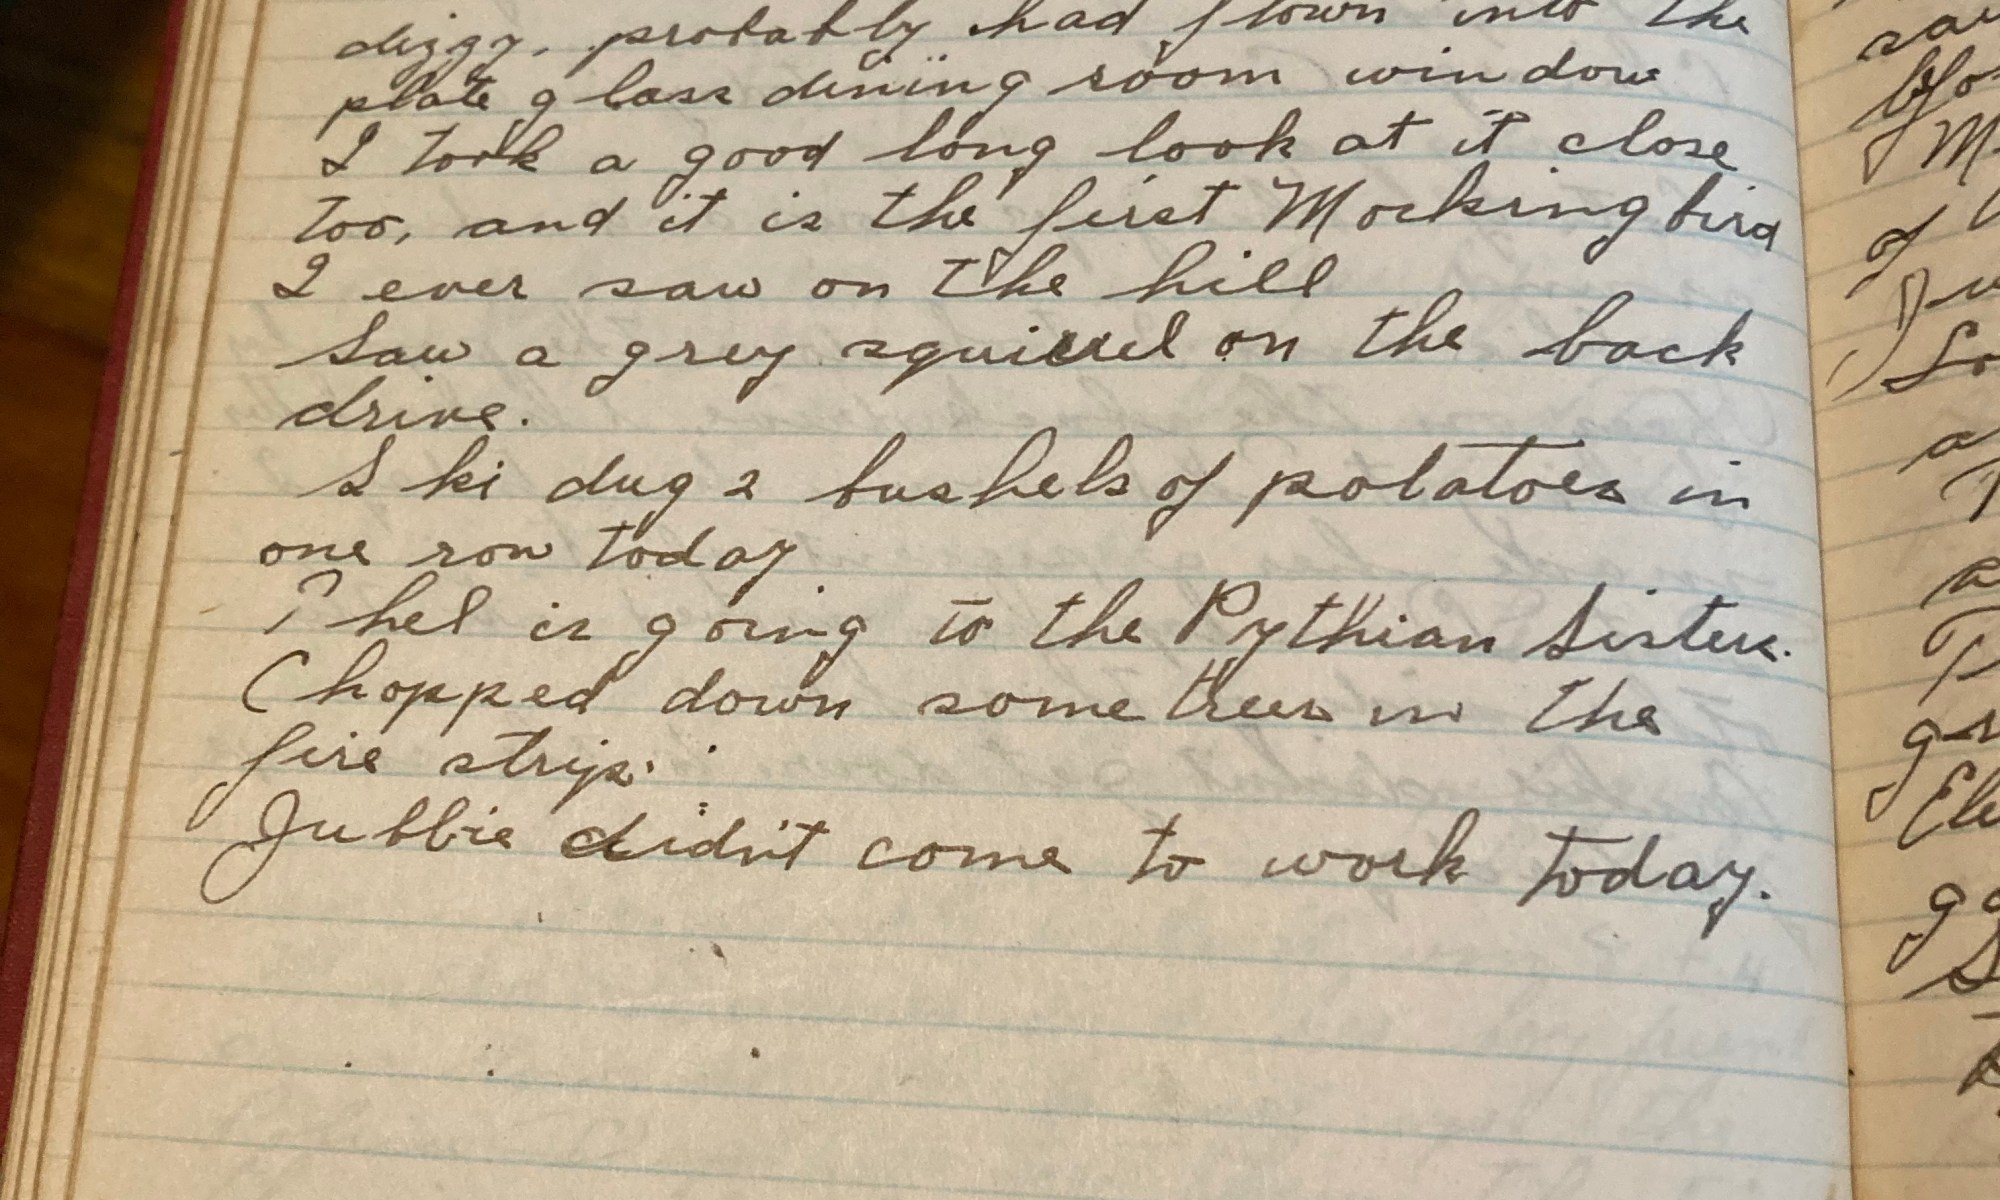 dizzy, probably had flown into the
plate glass dining room window
I took a good long look at it close
too, and it is the first Mockingbird
I ever saw on the hill
Saw a grey squirrel on the back
drive.
Ski dug 2 bushels of potatoes in
one row today
Thel is going to the Pythian Sisters.
Chopped down some trees in the
fire strip.
Jubbie didn't come to work today.
of